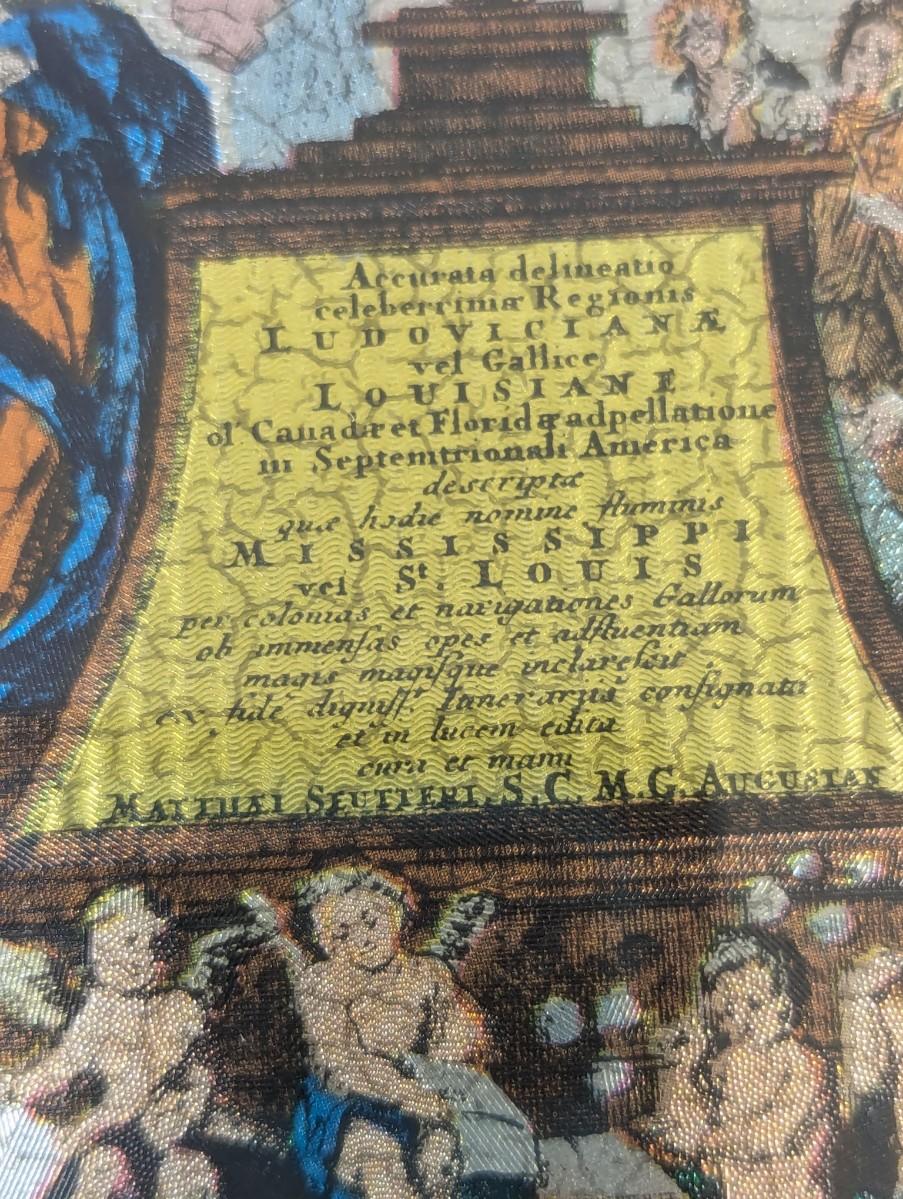 Accurata delineatio
celeberrimæ Regionis
LUDOVICIANÆ
vel Gallice
LOUISIANE
ol' Canadæ et Floridæ adpellatione
in Septemtrionali America
descriptæ
quæ hodie nomine fluminis
MISSISSIPPI
vel St. LOUIS
per colonias et navigationes Gallorum
ob immensas opes et adfluentiam
magis magisque inclarescit
ex fide digniss.
Itinerariis consignata
et in lucem edita
cura et manu
MATTHÆI SEUTTERI, S. C. M. G. AUGUSTAN